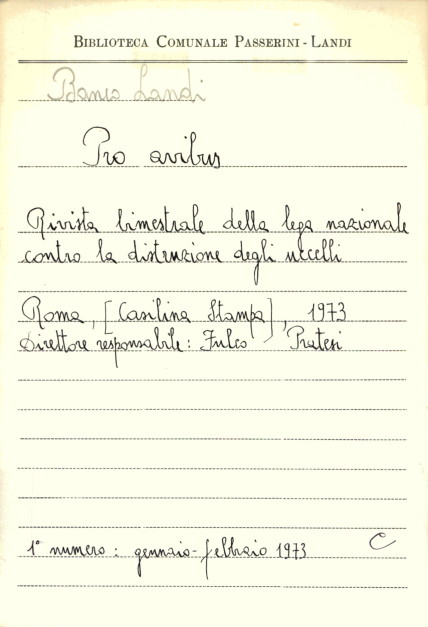 BIBLIOTECA COMUNALE PASSERINI - LANDI
Banco Landi
Pro avibus
Rivista bimestrale della lega nazionale
contro la distruzione degli uccelli
Roma, [Casilina Stampa], 1973
Direttore responsabile: Fulco Pratesi
1° numero: gennaio-febbraio 1973 C